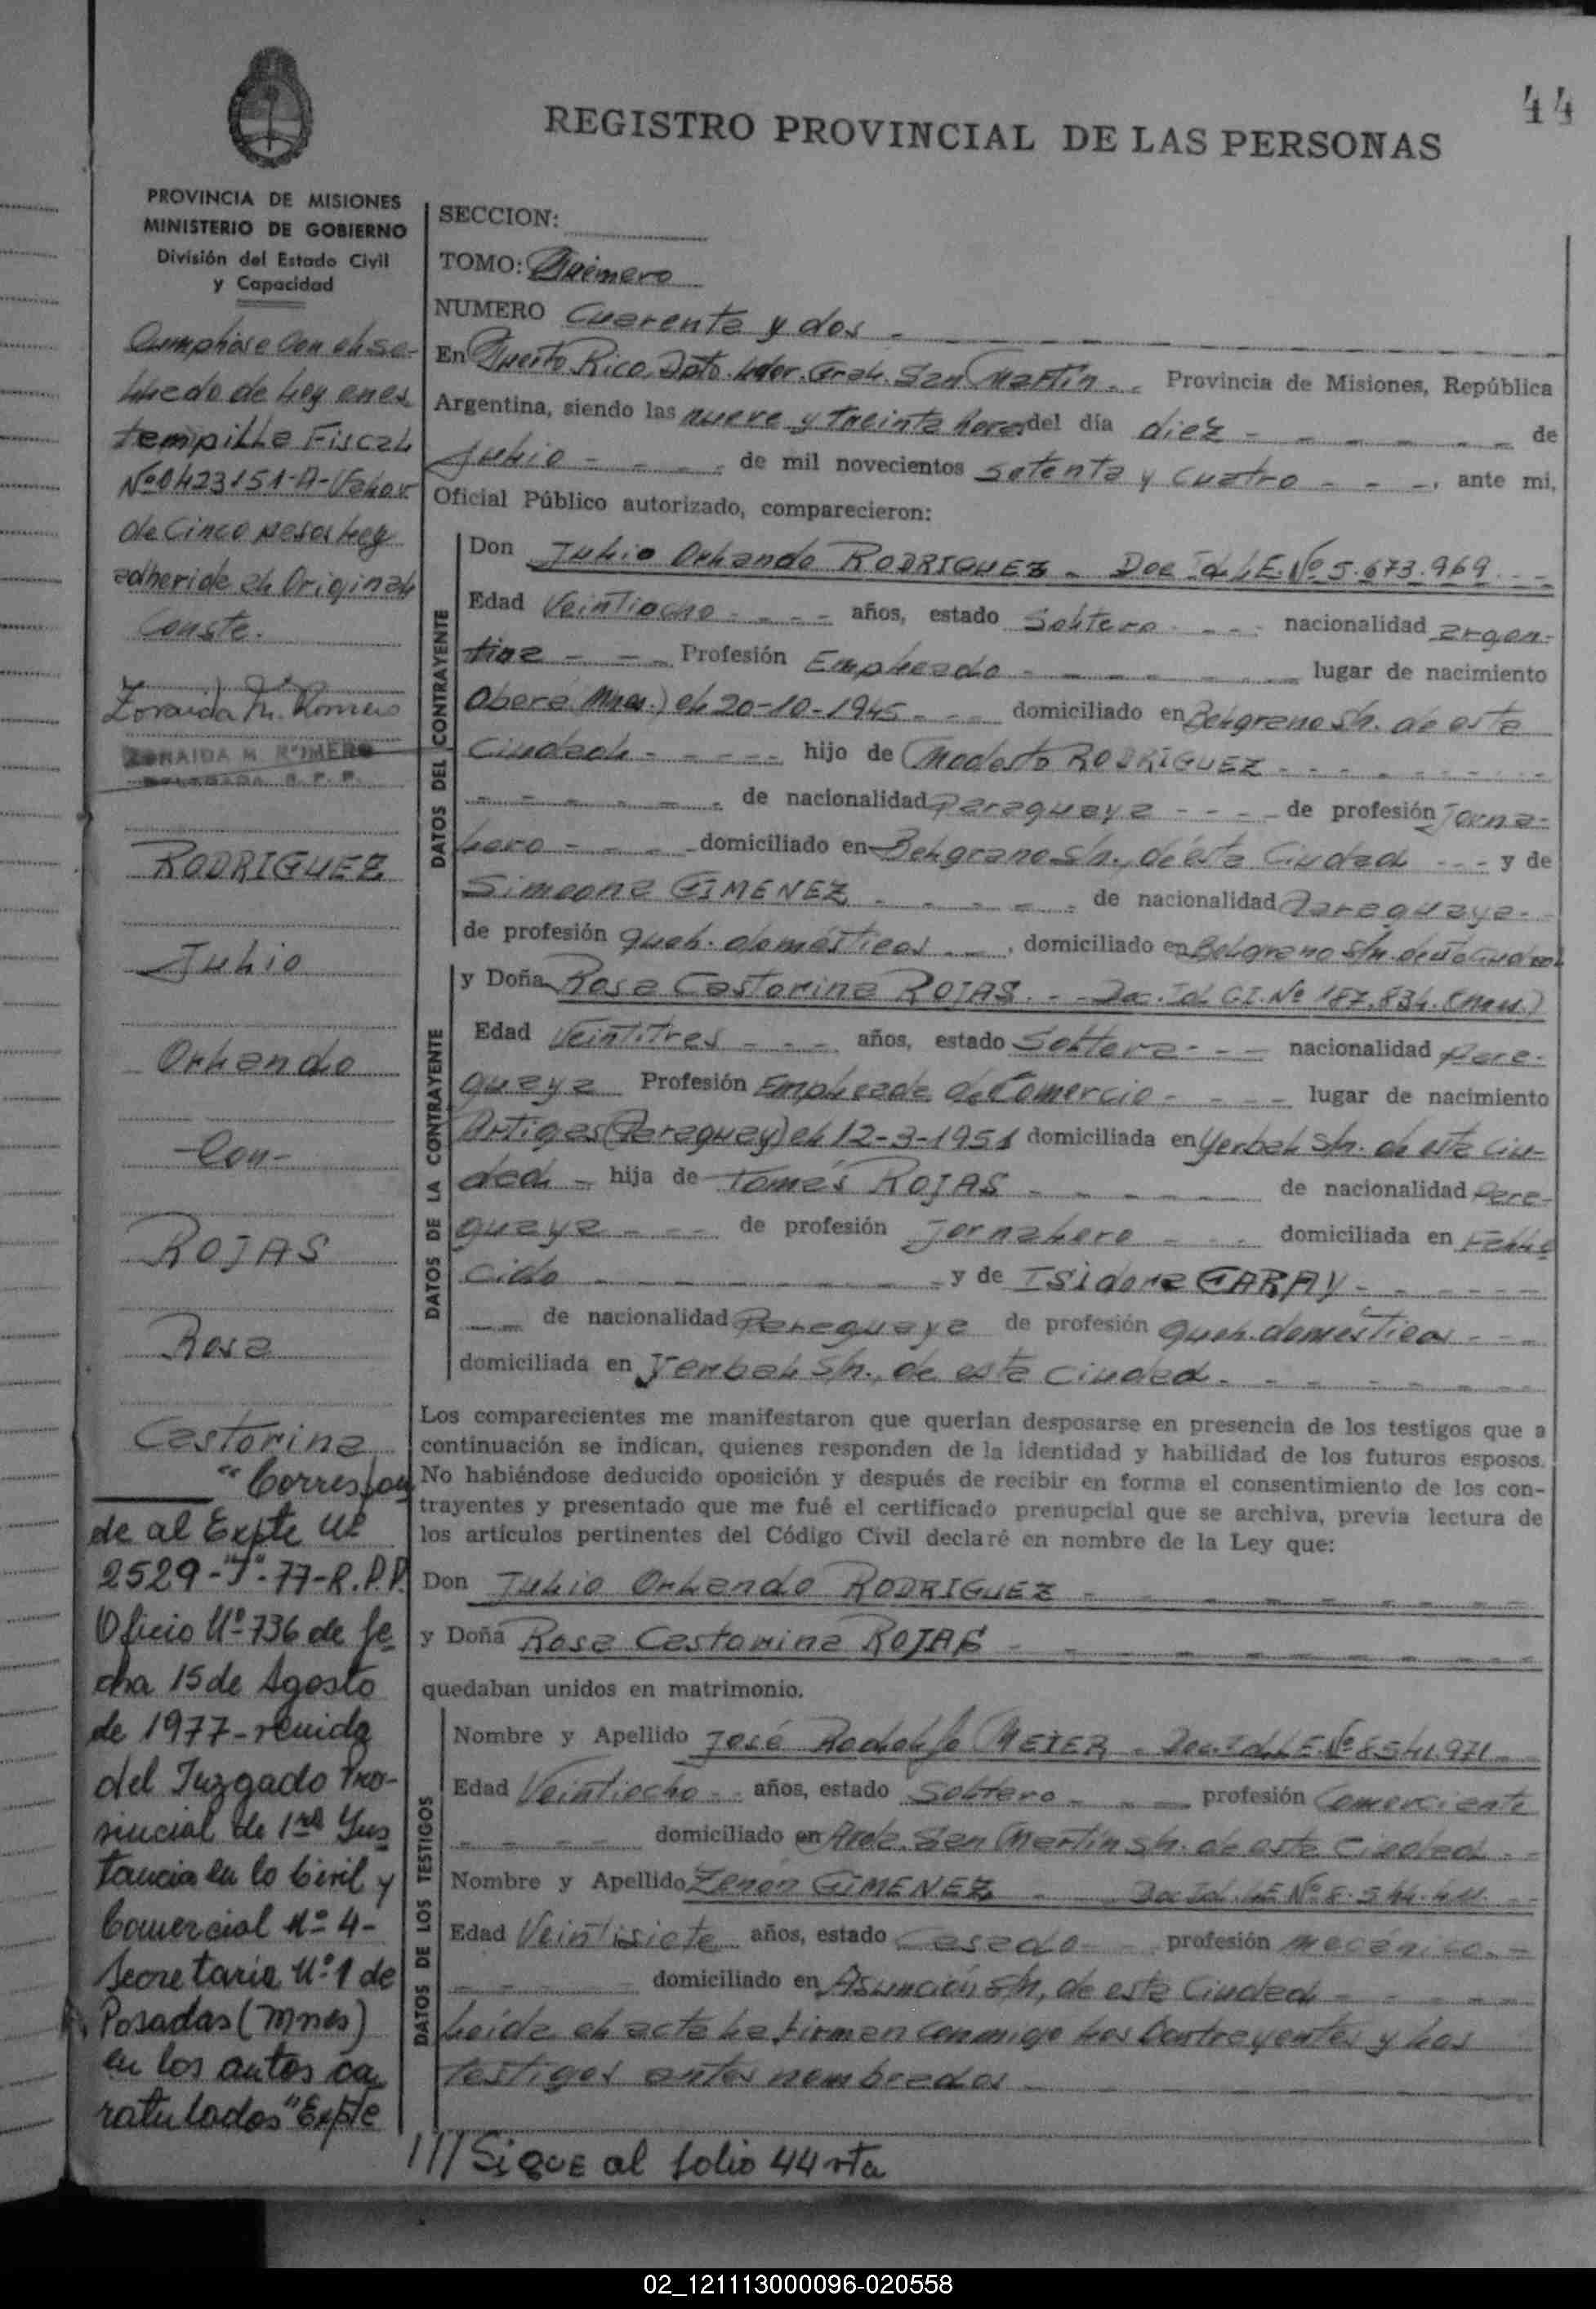 44
REGISTRO PROVINCIAL DE LAS PERSONAS
PROVINCIA DE MISIONES
MINISTERIO DE GOBIERNO
División del Estado Civil
y Capacidad
Cumplióse con el se-
llado de ley en es
tampilla Fiscal
Nº0423151-A-Valor
de Cinco pesos ley
adherida al Original
Conste.
Zoraida M. Romero
ZORAIDA M. ROMERO
DELEGADA R. P. P.
RODRIGUEZ
Julio
Orlando
-Con-
ROJAS
Rosa
Castorina
"Correspon
de al Expte Nº
2529-"J"-77-R.P.P.
Oficio Nº 736 de fe
cha 15 de Agosto
de 1977-
del Juzgado Pro-
vincial de 1ra Ins
tancia en lo Civil y
Comercial Nº 4-
Secretaria Nº 1 de
Posadas (Mnes)
en los autos ca
ratulados "Expte
SECCION:
TOMO: Primero
NUMERO Cuarenta y dos -
En Puerto Rico, Dpto. Ldor. Gral. San Martín - - Provincia de Misiones, República
Argentina, siendo las nueve y treinta horas del día diez - - - - - - de
Julio - - - - de mil novecientos setenta y cuatro - - -, ante mi,
Oficial Público autorizado, comparecieron:
DATOS DEL CONTRAYENTE
Don Julio Orlando RODRIGUEZ - Doc Id. L.E. Nº 5.673.969 - - -
Edad Veintiocho - - - - años, estado Soltero - - - nacionalidad argen-
tina - - - Profesión Empleado - - - - - - - lugar de nacimiento
Oberá (Mnes.) el 20-10-1945 - - - domiciliado en Belgrano s/n. de esta
Ciudad - - - - - hijo de Modesto RODRIGUEZ - - - - - - - - -
- - - - - - de nacionalidad Paraguaya - - - - de profesión Jorna-
lero - - - - domiciliado en Belgrano s/n., de ésta Ciudad - - - y de
Simeona GIMENEZ - - - - - de nacionalidad Paraguaya - -
de profesión queh. domésticos - - , domiciliado en Belgrano s/n. de esta Ciudad
DATOS DE LA CONTRAYENTE
y Doña Rosa Castorina ROJAS - - Doc. Id. C.I. Nº 187.834. (Mnes.)
Edad Veintitres - - - años, estado Soltera - - - nacionalidad para-
guaya Profesión Empleada de Comercio - - - - lugar de nacimiento
Artigas (Paraguay) el 12-3-1951 domiciliada en Yerbal s/n. de esta ciu-
dad - hija de Tomás ROJAS - - - - - - de nacionalidad Para-
guaya - - - de profesión Jornalero - - - domiciliada en Falle
cido - - - - - - - - y de Isidora GARAY - - - - - -
- - de nacionalidad Paraguaya de profesión queh. domésticos - - -
domiciliada en Yerbal s/n., de esta Ciudad - - - - - - - -
Los comparecientes me manifestaron que querían desposarse en presencia de los testigos que a
continuación se indican, quienes responden de la identidad y habilidad de los futuros esposos.
No habiéndose deducido oposición y después de recibir en forma el consentimiento de los con-
trayentes y presentado que me fué el certificado prenupcial que se archiva, previa lectura de
los artículos pertinentes del Código Civil declaré en nombre de la Ley que:
Don Julio Orlando RODRIGUEZ - - - - - - - - -
y Doña Rosa Castorina ROJAS - - - - - - - - - -
quedaban unidos en matrimonio.
DATOS DE LOS TESTIGOS
Nombre y Apellido José Rodolfo MEIER - Doc. Id. L.E. Nº 8.541.971 - -
Edad Veintiocho - - años, estado Soltero - - - profesión Comerciante
- - - - domiciliado en Avda. San Martín s/n. de esta Ciudad - -
Nombre y Apellido Zenón GIMENEZ - Doc Id. L.E Nº 8.544.411 - -
Edad Veintisiete años, estado Casado - - profesión mecánico - -
- - - domiciliado en Asunción s/n, de esta Ciudad - - - - -
Leída el acta la firman conmigo los Contrayentes y los
testigos antes nombrados
/// Sigue al folio 44 vta
02_121113000096-020558